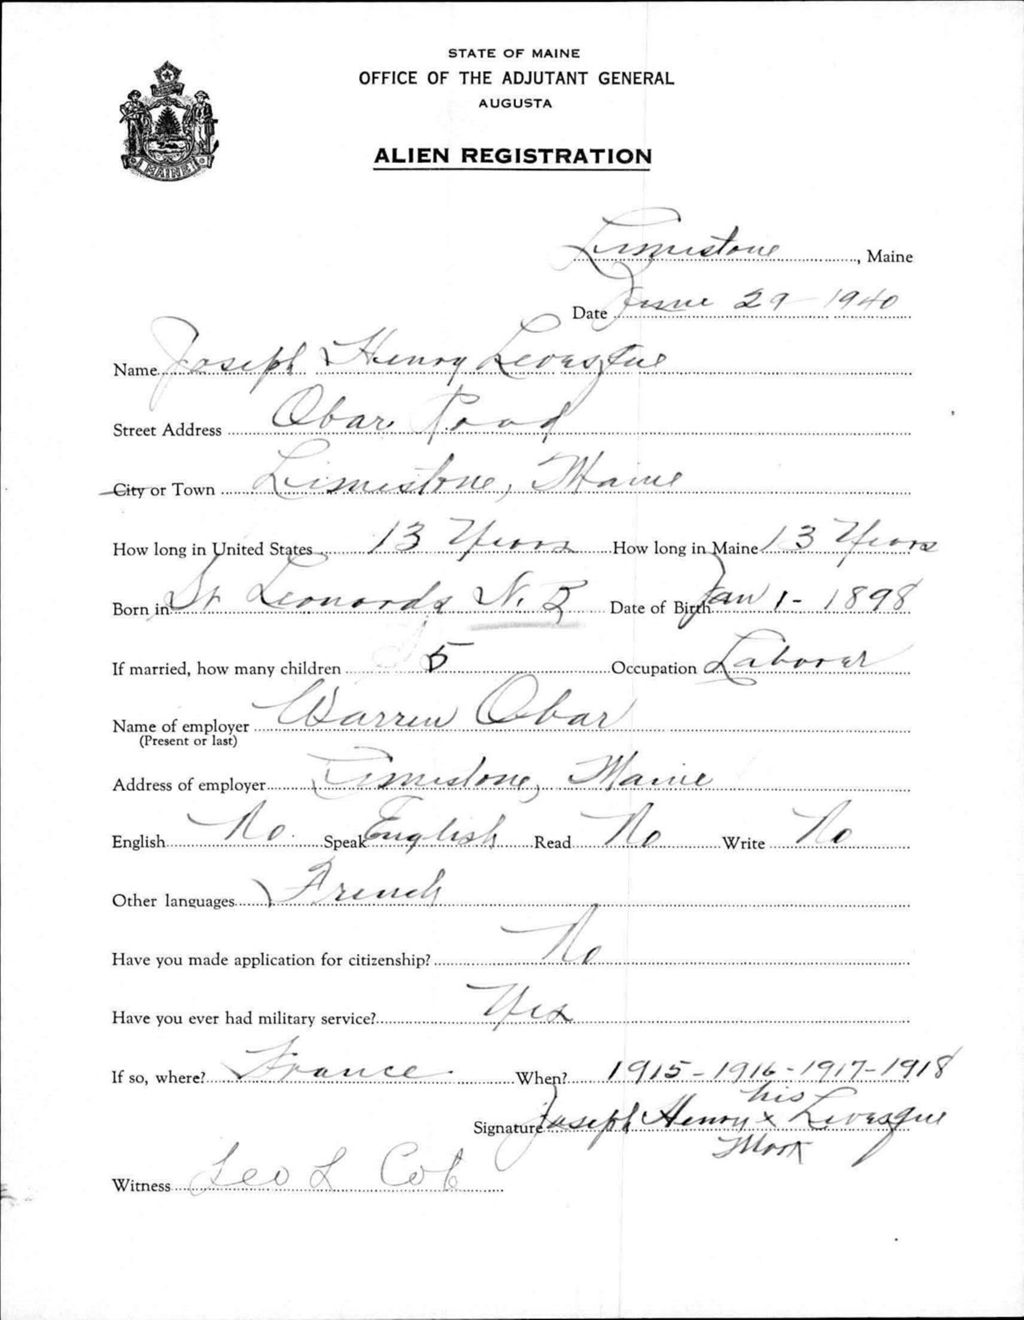 STATE OF MAINE
OFFICE OF THE ADJUTANT GENERAL
AUGUSTA
ALIEN REGISTRATION
MAINE
Limestone, Maine
Date June 29 - 1940
Name Joseph Henry Levesque
Street Address Obar Road
City or Town Limestone, Maine
How long in United States 13 Years How long in Maine 13 Years
Born in St Leonards N. B Date of Birth Jan 1 - 1898
If married, how many children 5 Occupation Laborer
Name of employer Warren Obar
(Present or last)
Address of employer Limestone, Maine
English No. Speak English Read No Write No
Other languages French
Have you made application for citizenship? No
Have you ever had military service? Yes
If so, where? France When? 1915-1916-1917-1918
his
Signature Joseph Henry x Levesque
Mark
Witness Geo L Cob